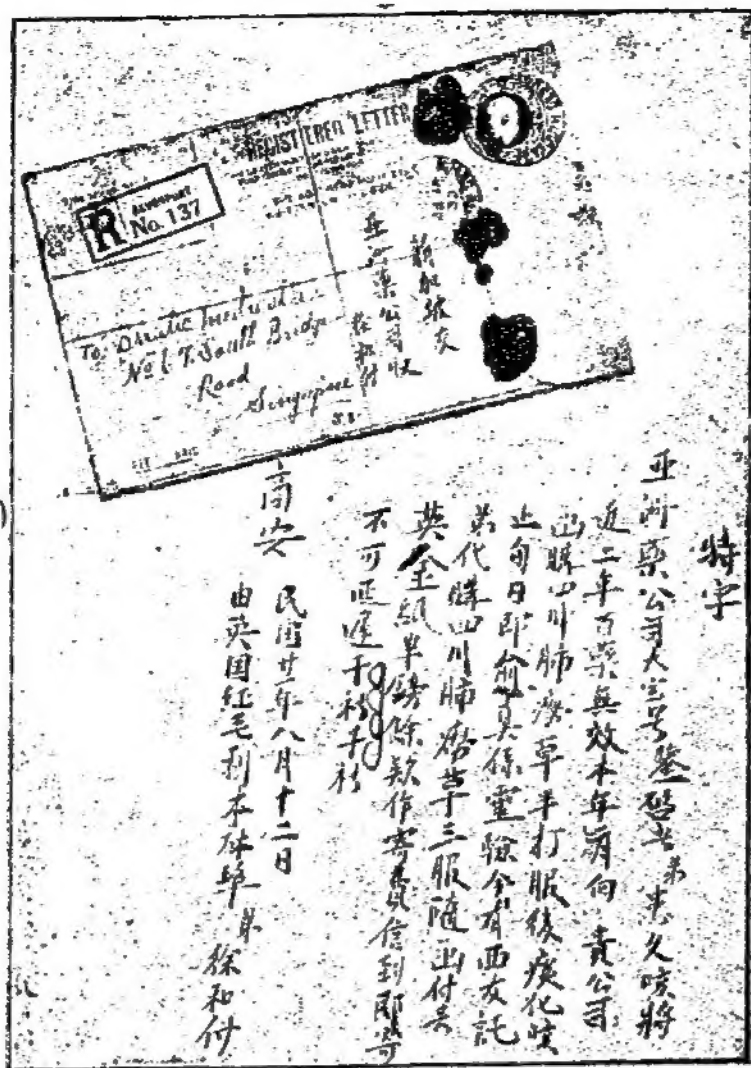 REGISTERED LETTER
R
DEVONPORT
No. 137
To
South Bridge
Road
Singapore
S.S.
亞洲藥公司收
徐和付
特字
亞洲藥公司大宝号鉴啓者弟患久咳將
近二年百藥無效本年 月向 貴公司
函購四川肺癆草半打服後痰化咳
止旬日即愈真係靈驗今有西友託
弟代購四川肺癆草三服隨函付去
英金紙半鎊餘款作寄費信到即寄
不可延遲千祈千祈
商安
民國廿一年八月十二日
由英国紅毛利 埠弟 徐和付